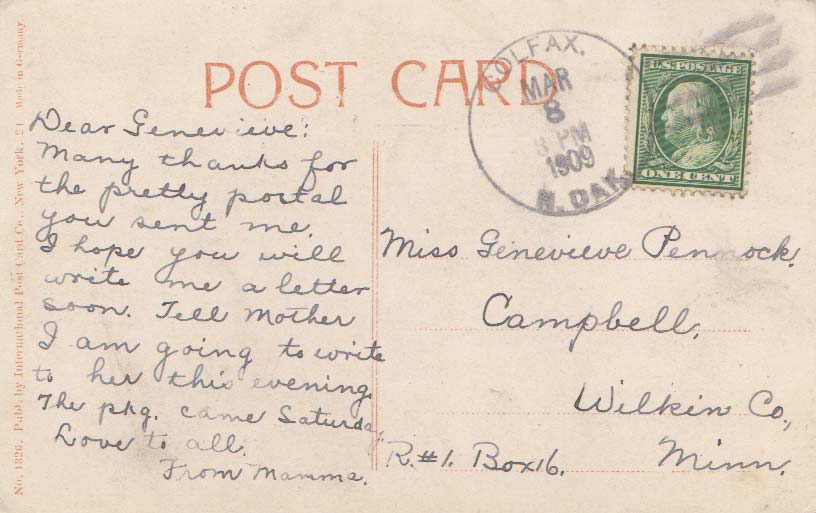 POST CARD
COLFAX,
MAR
8
3 PM
1909
N. DAK.
U.S. POSTAGE
ONE CENT
Dear Genevieve:
Many thanks for
the pretty postal
you sent me.
I hope you will
write me a letter
soon. Tell Mother
I am going to write
to her this evening.
The pkg. came Saturday,
Love to all.
From Mamma.
Miss Genevieve Pennock.
Campbell,
Wilkin Co.,
R.#1. Box 16. Minn.
No. 1326. Publ. by International Post Card Co., New York. 21 Made in Germany.